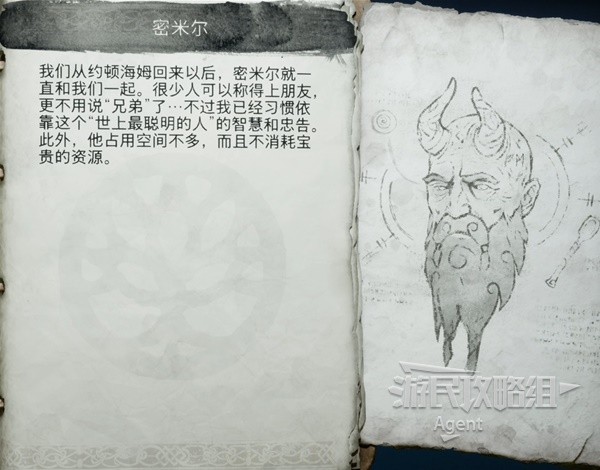 密米尔
我们从约顿海姆回来以后，密米尔就一
直和我们一起。很少人可以称得上朋友，
更不用说“兄弟”了…不过我已经习惯依
靠这个“世上最聪明的人”的智慧和忠告。
此外，他占用空间不多，而且不消耗宝
贵的资源。
游民攻略组
Agent